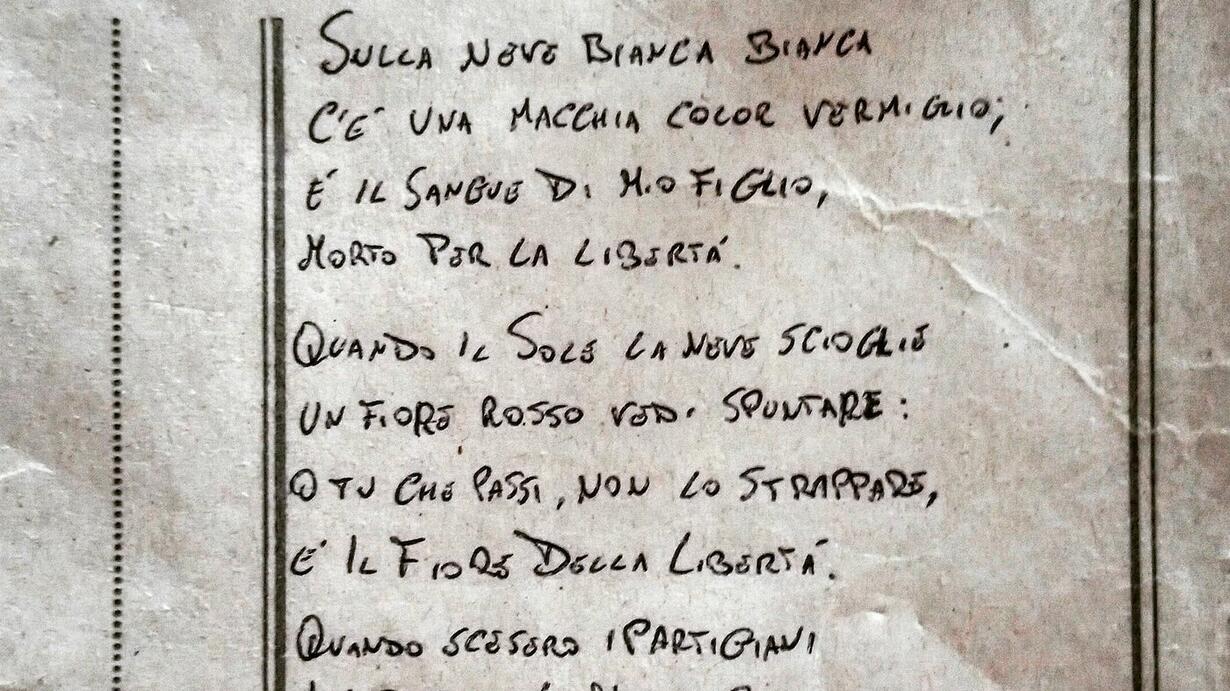 SULLA NEVE BIANCA BIANCA
C'É UNA MACCHIA COLOR VERMIGLIO;
É IL SANGUE DI MIO FIGLIO,
MORTO PER LA LIBERTÁ.
QUANDO IL SOLE LA NEVE SCIOGLIE
UN FIORE ROSSO VEDI SPUNTARE:
O TU CHE PASSI, NON LO STRAPPARE,
É IL FIORE DELLA LIBERTÁ.
QUANDO SCESERO I PARTIGIANI